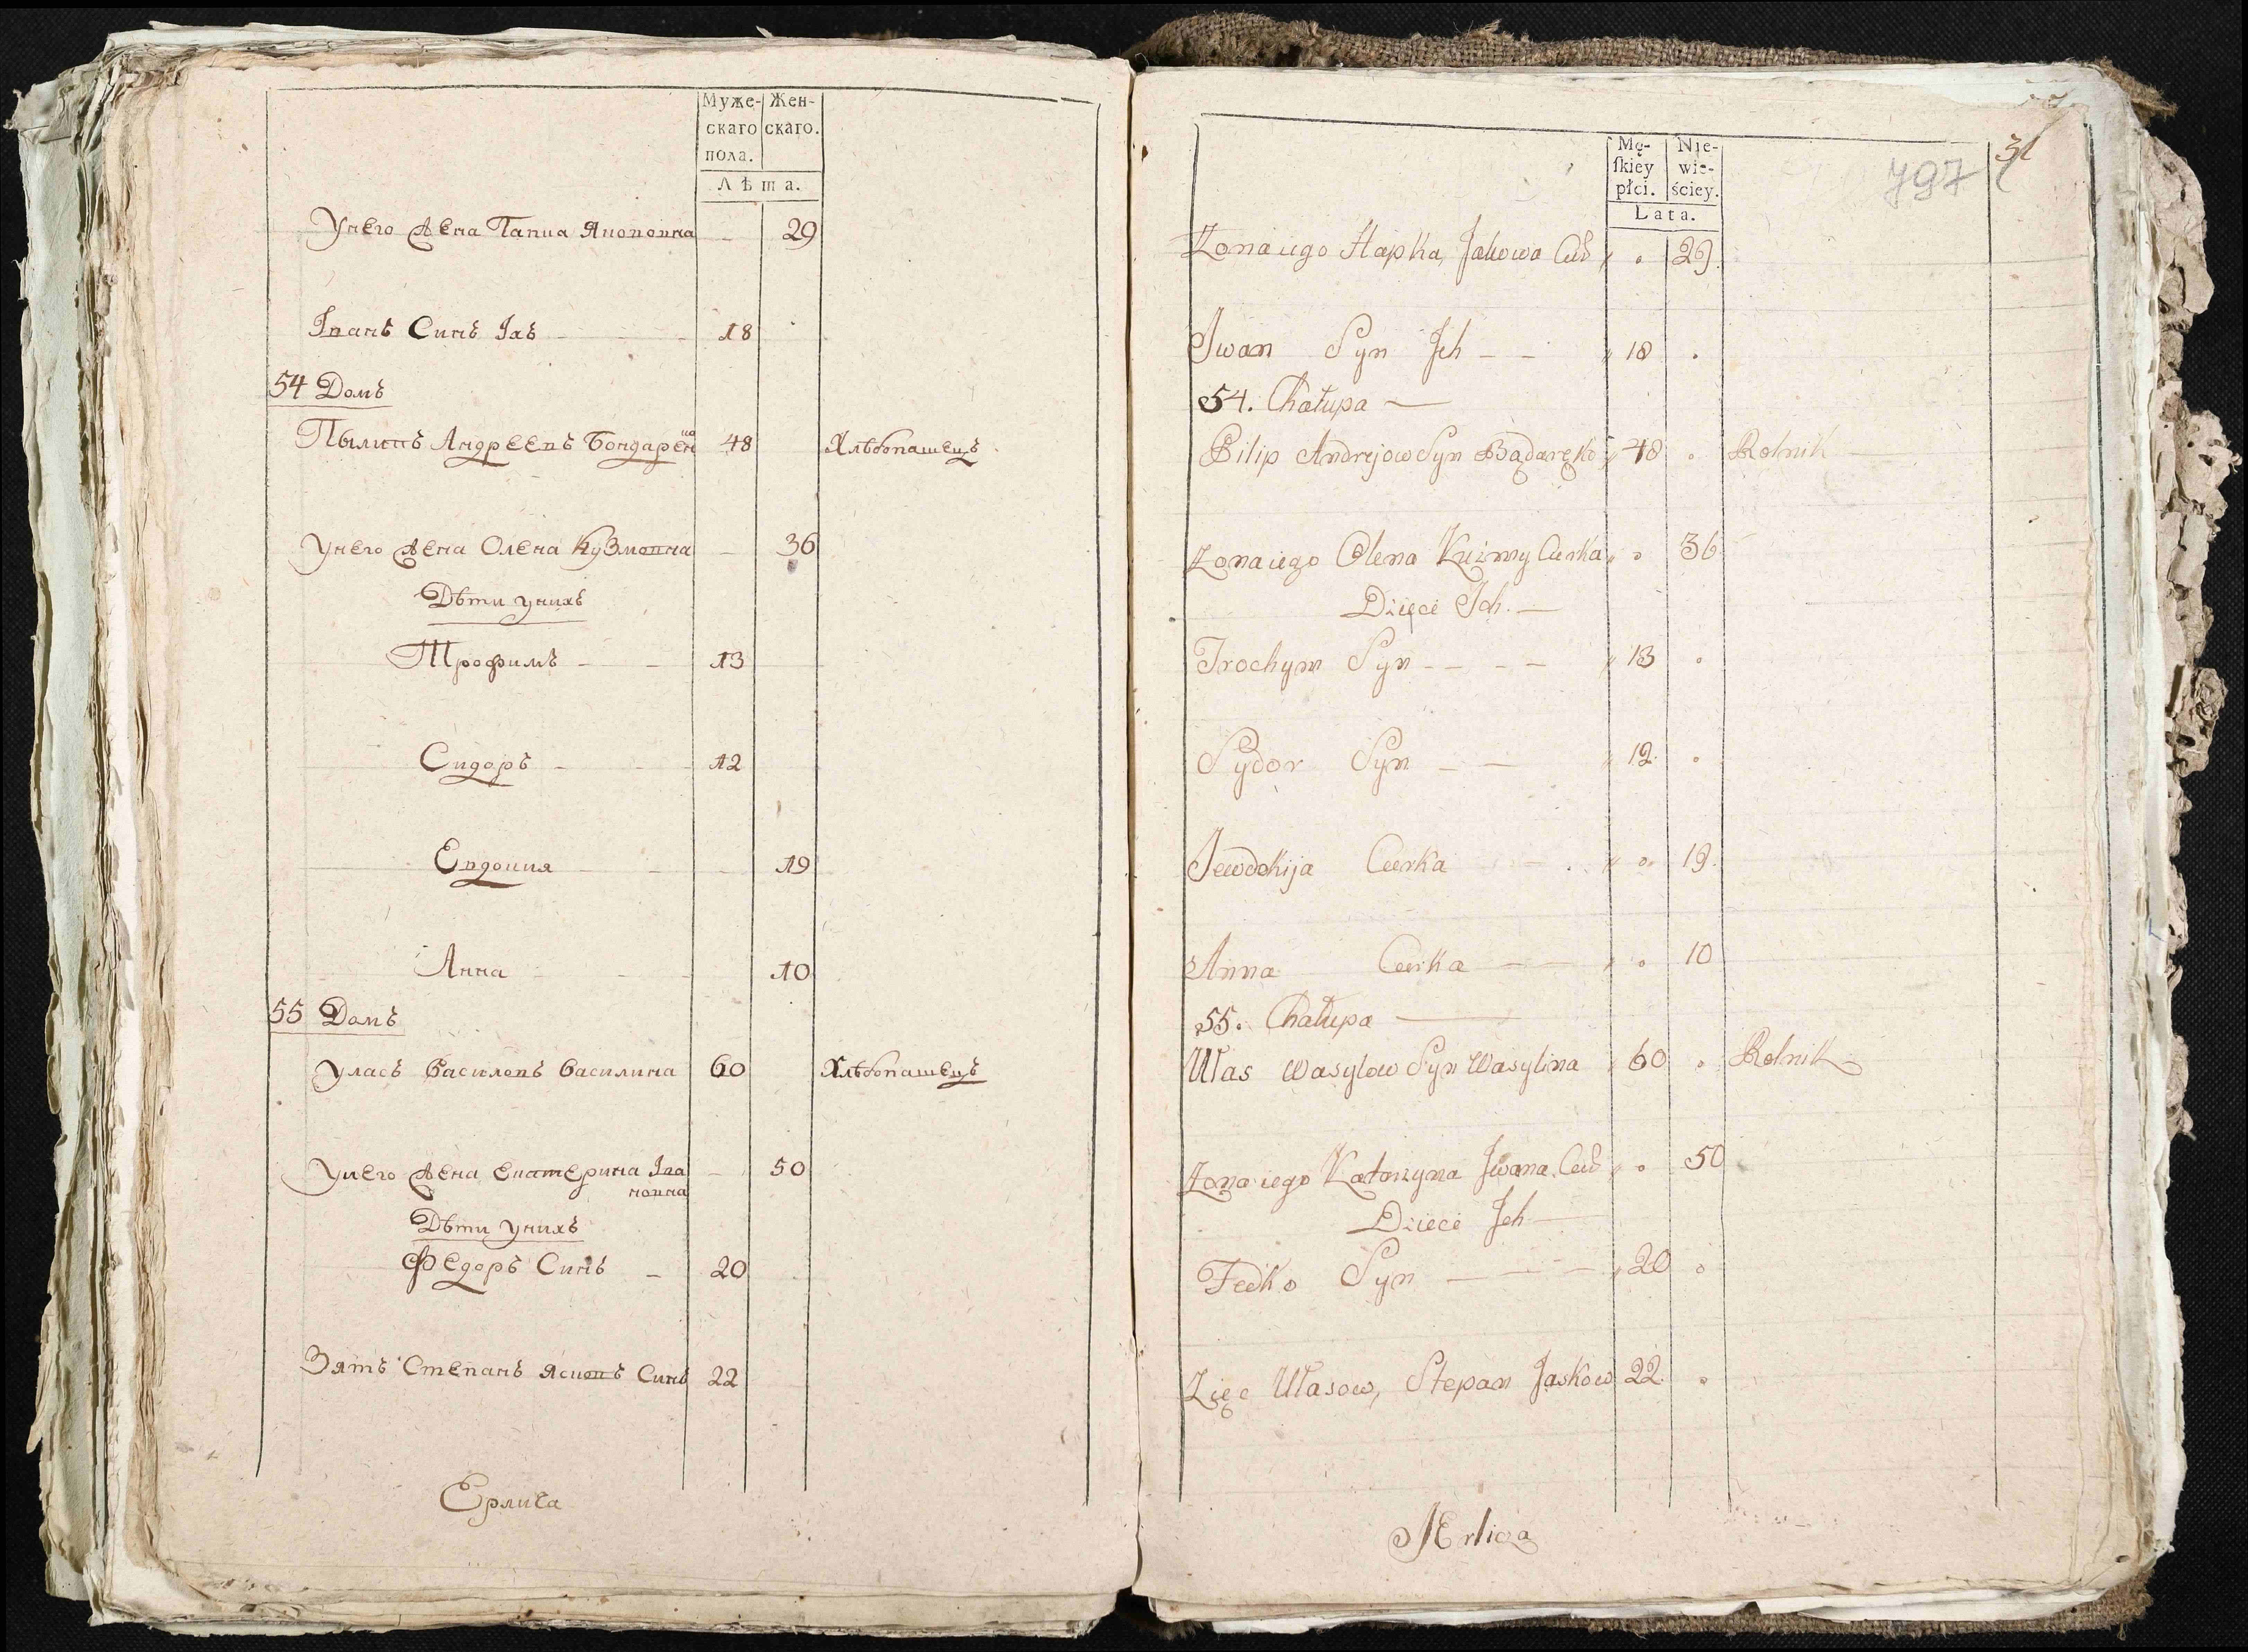 Муже- Жен-
скаго скаго.
пола.
Лѣта.
Унего жена Гапка Якововна — 29
Іванъ Синъ Іхъ — 18
54 Домъ
Пылипъ Андреевъ Бондаренко 48 Хлѣбопашецъ
Унего жена Олена Кузмовна — 36
Дѣти унихъ
Трофимъ — — 13
Сидоръ — — 12
Евдокия — — — 19
Анна — — — 10
55 Домъ
Уласъ Василовъ Василина 60 Хлѣбопашецъ
Унего жена Екатерина Іва — 50
новна
Дѣти унихъ
Федоръ Синъ — 20
Зятъ Степанъ Ясковъ Синъ 22
Ерлича
31
797
Mę- Nie-
ſkiey wie-
płci. ściey.
Lata.
Zona iego Hapka, Jakowa Cur 29.
Jwan Syn Jch — — 18
54. Chałupa —
Pilip Andrejow Syn Bądaręko 48 Rolnik
Zona iego Olena Kuzmy Curka 36
Dzięci Jch. —
Trochym Syn — — — — 13
Sydor Syn — — 12.
Jewdokija Curka 19.
Anna Curka — — 10
55. Chałupa —
Ułas Wasylow Syn Wasylina 60 Rolnik
Zona iego Katarzyna Jwana Cur 50
Dzieci Jch —
Fedko Syn — — — 20
Zięc Ułasow, Stepan Jaskow 22.
JErlicza